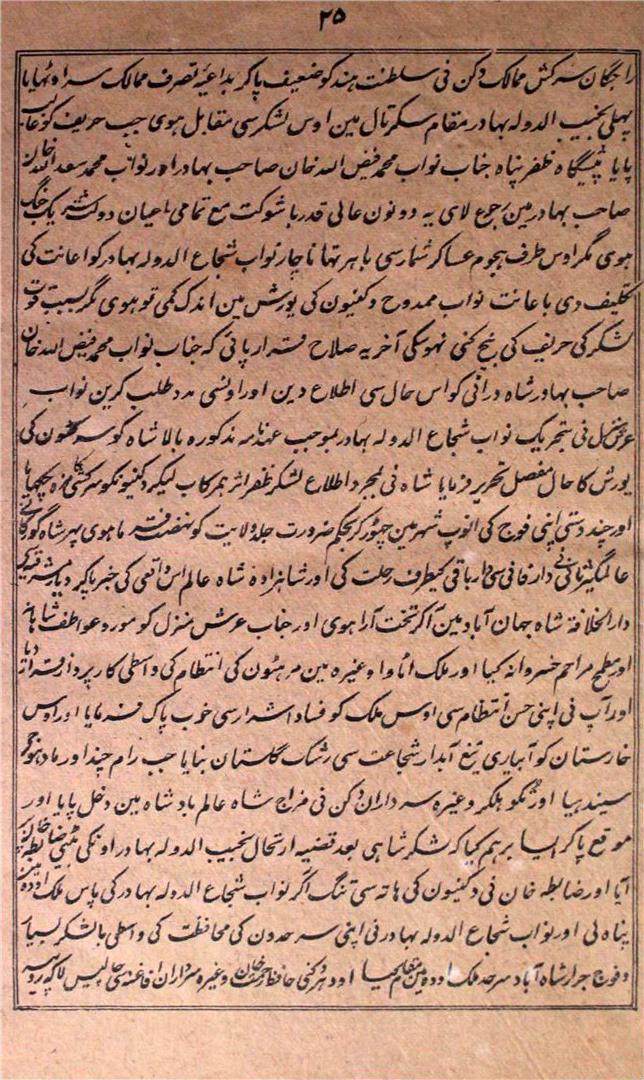 ۲۵
راجگان سرکش ممالک دکن نی سلطنت ہند کو ضعیف پاکر بداعیۂ تصرف ممالک سر اوٹھایا
پہلی نجیب الدولہ بہادر مقام سکرتال مین اوس لشکر سی مقابل ہوی جب حریف کو غالب
پایا پیشگاہ ظفر پناہ جناب نواب محمد فیض اللہ خان صاحب بہادر اور نواب محمد سعد اللہ خان
صاحب بہادر مین رجوع لای یہ دونون عالی قدر با شوکت مع تمامی اعیان دولت شریک جنگ
ہوی مگر اوس طرف ہجوم عساکر شمار سی باہر تہا ناچار نواب شجاع الدولہ بہادر کو اعانت کی
تکلیف دی باعانت نواب ممدوح دکنیون کی یورش مین اندک کمی تو ہوی مگر بسبب قوت
لشکر کی حریف کی بیخ کنی نہوسکی آخر یہ صلاح قرار پائی کہ جناب نواب محمد فیض اللہ خان
صاحب بہادر شاہ درانی کو اس حال سی اطلاع دین اور اونسی مدد طلب کرین نواب
عرش منزل نی بتحریک نواب شجاع الدولہ بہادر بموجب عہدنامہ مذکورہ بالا شاہ کو سرکشون کی
یورش کا حال مفصل تحریر فرمایا شاہ نی بمجرد اطلاع لشکر ظفر اثر ہمرکاب لیکر دکنیونکو سرکشی کا مزہ چکھایا
اور چند دستی اپنی فوج کی انوپ شہر مین چھوڑ کر بحکم ضرورت جلد ولایت کو نہضت فرما ہوی پہر شاہ گورگانی
عالمگیر ثانی نی دار فانی سی دار باقی کیطرف رحلت کی اور شاہزادہ شاہ عالم اس واقعی کی خبر پاکر دیار شرقیہ سی
دار الخلافۃ شاہ جہان آباد مین آکر تخت آرا ہوی اور جناب عرش منزل کو مورد عواطف شاہانہ
اور مطمح مراحم خسروانہ کیا اور ملک اٹاوا وغیرہ مین مرہٹون کی انتظام کی واسطی کارپرداز قرار دیا
اور آپ نی اپنی حسن انتظام سی اوس ملک کو فساد اشرار سی خوب پاک فرمایا اور اوس
خارستان کو آبیاری تیغ آبدار شجاعت سی رشک گلستان بنایا جب رام چندا ور مادہوجی
سیندہیا اور تکو ہلکر وغیرہ سرداران دکن نی مزاج شاہ عالم بادشاہ مین دخل پایا اور
موقع پاکر ایسا برہم کیا کہ لشکر شاہی بعد قضیہ ارتحال نجیب الدولہ بہادر اونکی بیٹی ضابطہ خان پر
آیا اور ضابطہ خان نی دکنیون کی ہاتہ سی تنگ آکر نواب شجاع الدولہ بہادر کی پاس ملک اودہ مین
پناہ لی اور نواب شجاع الدولہ بہادر نی اپنی سرحدون کی محافظت کی واسطی بالشکر بسیار
و فوج جرار شاہ آباد سرحد ملک اودہ مین مقام کیا اور حافظ رحمت خان وغیرہ سرداران افاغنہ سی چالیس لاکہ روپیہ